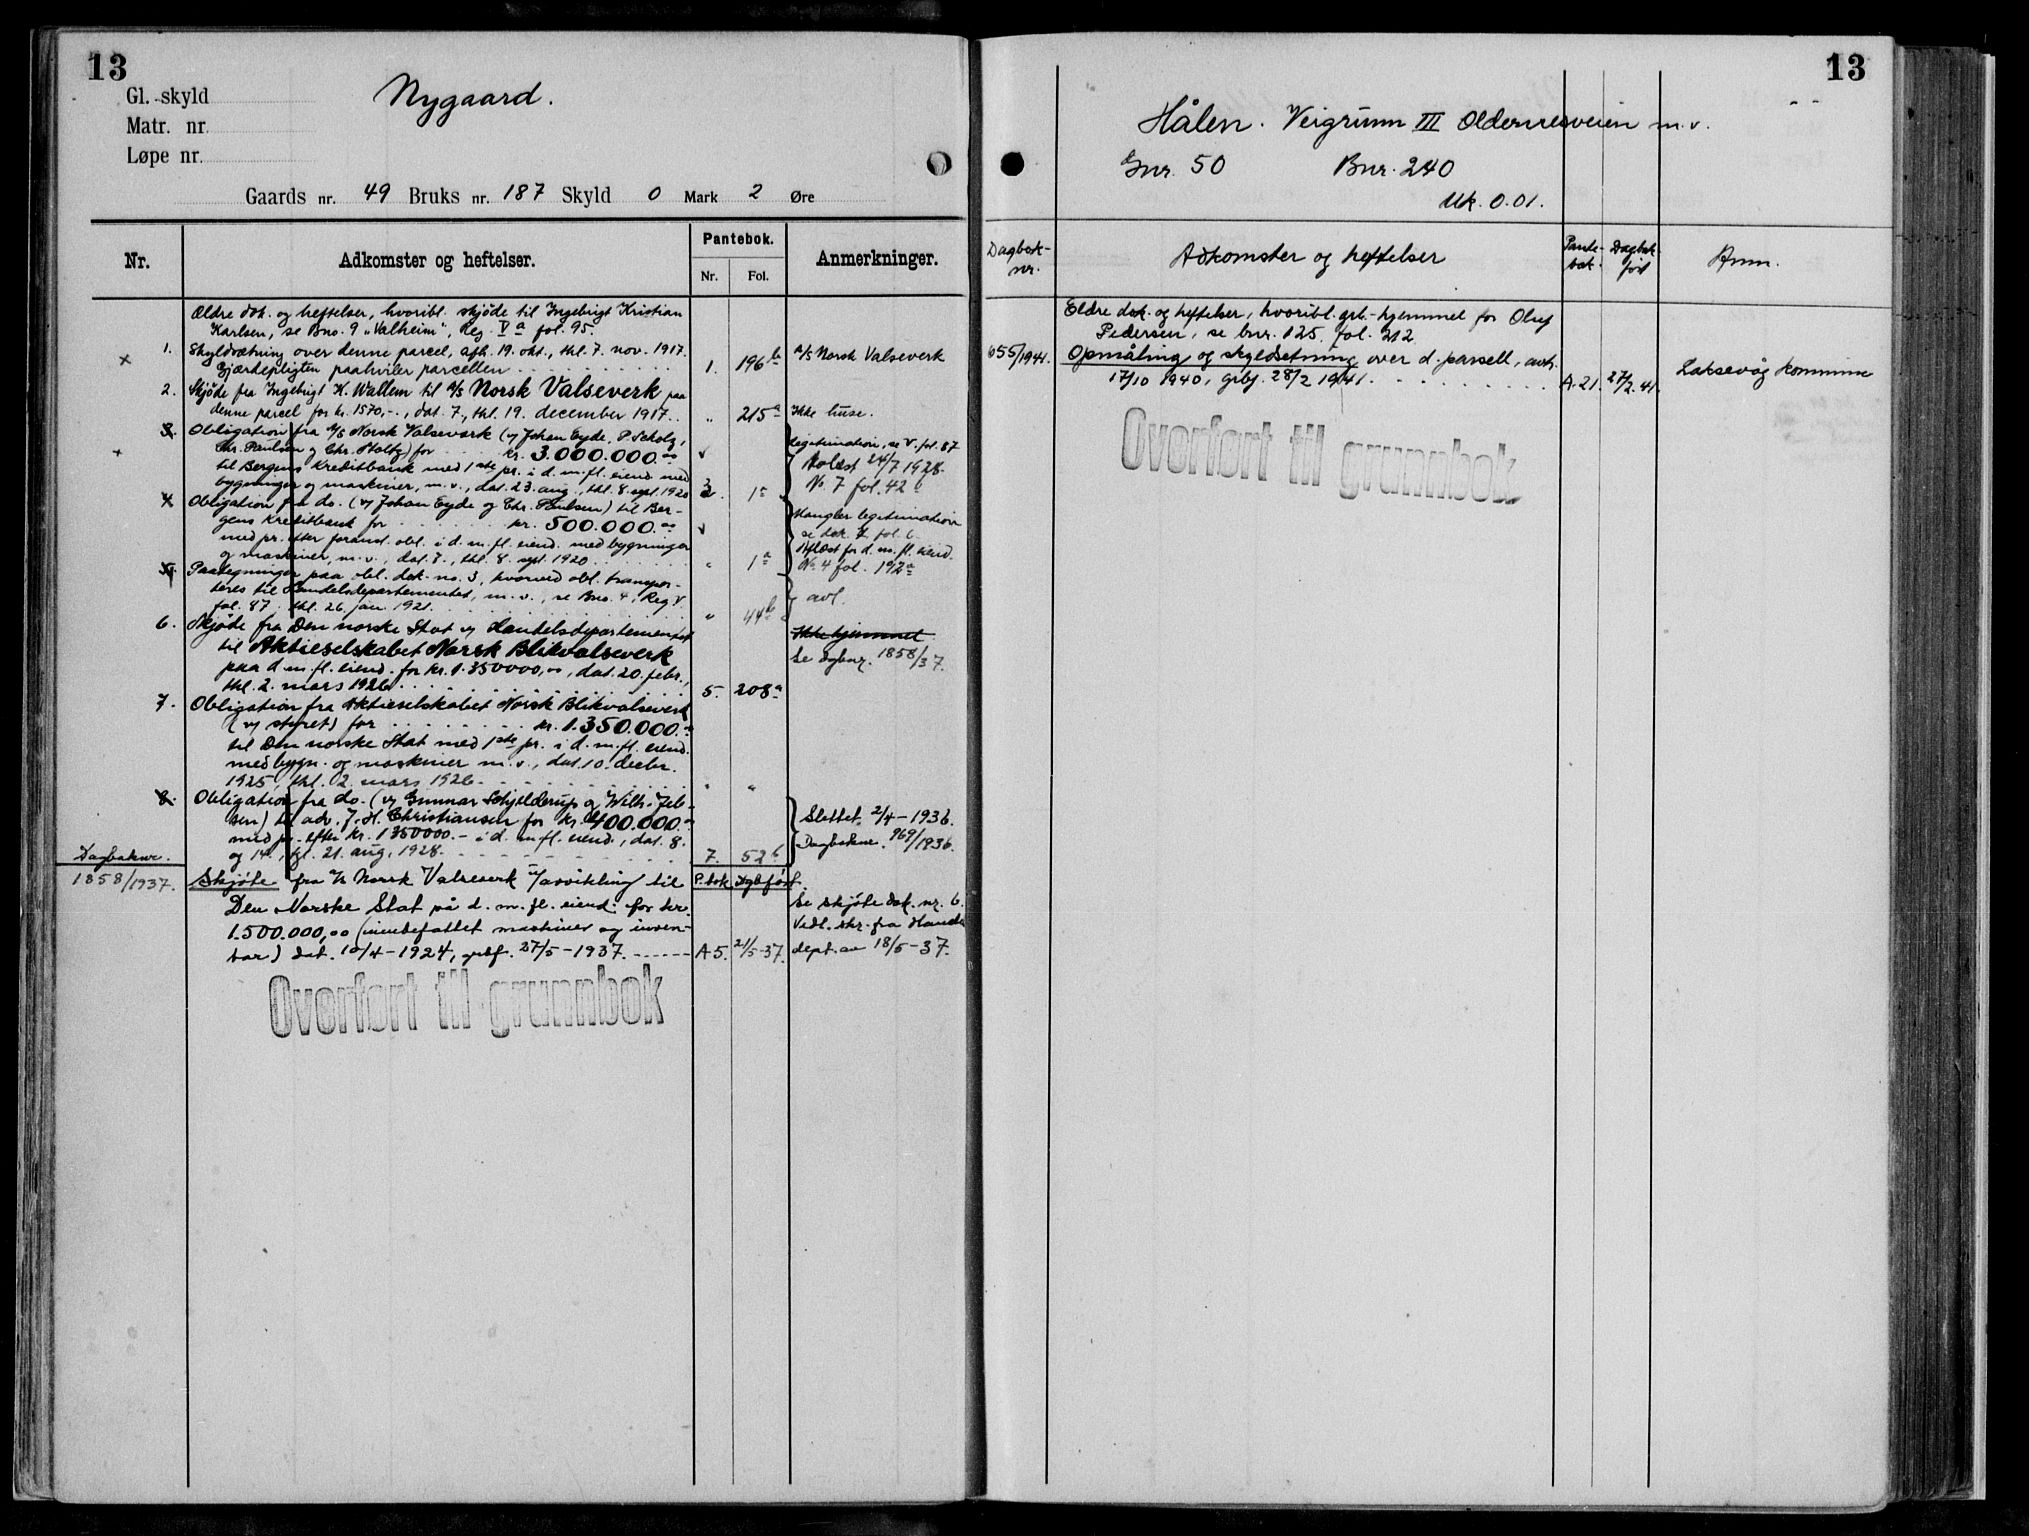 13
Gl. skyld
Nygaard.
Matr. nr.
Løpe nr.
Gaards nr. 49 Bruks nr. 187 Skyld 0 Mark 2 Øre
Nr.
Adkomster og heftelser.
Pantebok.
Nr. Fol.
Anmerkninger.
Ældre dok. og heftelser, hvoribl. skjøde til Ingebrigt Kristian
Karlsen, se Bno. 9 „Valheim", Reg. V a fol. 95.
1. Skyldsætning over denne parcel, afh. 19. okt., thl. 7. nov. 1917.
Gjærdepligten paahviler parcellen . . . 1. 196 b A/S Norsk Valseverk
2. Skjøde fra Ingebrigt K. Wallem til A/S Norsk Valseverk paa
denne parcel for kr. 1570,-, dat. 7., thl. 19. december 1917. " 215 a Ikke huse.
3. Obligation fra A/S Norsk Valseverk (v/ Johan Eyde, P. Scholz,
Chr. Paulsen og Chr. Stoltz) for kr. 3.000.000.00
til Bergens Kreditbank med 1ste pr. i d. m. fl. eiend. med
bygninger og maskiner, m. v., dat. 23. aug., thl. 8. sept. 1920 2. 1 a
Legitimation, se V. fol. 87
Avlæst 24/7 1928
No. 7 fol. 42 b
4. Obligation fra do. (v/ Johan Eyde og Chr. Paulsen) til Ber-
gens Kreditbank for kr. 500.000.00
med pr. efter forannt. obl. i d. m. fl. eiend. med bygninger
og maskiner, m. v., dat. 7., thl. 8. sept. 1920 " 1 a
Mangler legitimation
se dok. 7 fol. 6.
Aflæst for d. m. fl. eiend.
No. 4 fol. 192 a
5. Paategninger paa obl. dok. no. 3, hvorved obl. transpor-
teres til Handelsdepartementet, m. v., se Bno. 4, Reg V
fol. 87. thl. 26. jan. 1921. " 44 b avl.
6. Skjøde fra Den norske Stat v/ Handelsdepartementet
til Aktieselskabet Norsk Blikvalseverk
paa d. m. fl. eiend. for kr. 1.350000,00, dat. 20. febr.,
thl. 2. mars 1926. 5. 208 a
Ikke hjemmel
Se dgbnr. 1858/37.
7. Obligation fra Aktieselskabet Norsk Blikvalseverk
(v/ styret) for kr. 1.350.000.00
til Den norske Stat med 1ste pr. i d. m. fl. eiend.
med bygn. og maskiner m. v., dat. 10. decbr.
1925, thl. 2. mars 1926. " "
8. Obligation fra do. (v/ Gunnar Schjelderup og Wilh. Jeb-
sen) til adv. J. H. Christiansen for kr. 400.000.00
med pr. efter kr. 1350000.- i d. m. fl. eiend., dat. 8.
og 14., tgl. 21. aug. 1928. 7. 52 b
Slettet. 2/4 - 1936.
Dagboknr. 969/1936.
Dagboknr.
1858/1937.
P.bok Dgb.ført.
Skjøte fra A/S Norsk Valseverk u/avvikling til
Den Norske Stat på d. m. fl. eiend. for kr.
1.500.000,00 (innbefattet maskiner og inven-
tar) dat. 10/4 - 1924, grbf. 27/5 - 1937. A 5. 21/5-37.
Se skjøte dok. nr. 6.
Vedl. skr. fra Handels
dept. av 18/5 - 37.
Overført til grunnbok
13
Hålen. Veigrunn III Oldernesveien m. v.
Gnr. 50 Bnr. 240
Mk. 0.01.
Dagbok-
nr.
Adkomster og heftelser
Pante-
bok.
Dagbok
ført
Anm.
Eldre dok. og heftelser, hvoribl. grb.-hjemmel for Oluf
Pedersen, se bnr. 125. fol. 212
655/1941. Opmåling og skyldsetning over d. parsell, avh.
17/10 1940, grbf. 28/2 1941. A. 21. 27/2. 41. Laksevåg kommune
Overført til grunnbok